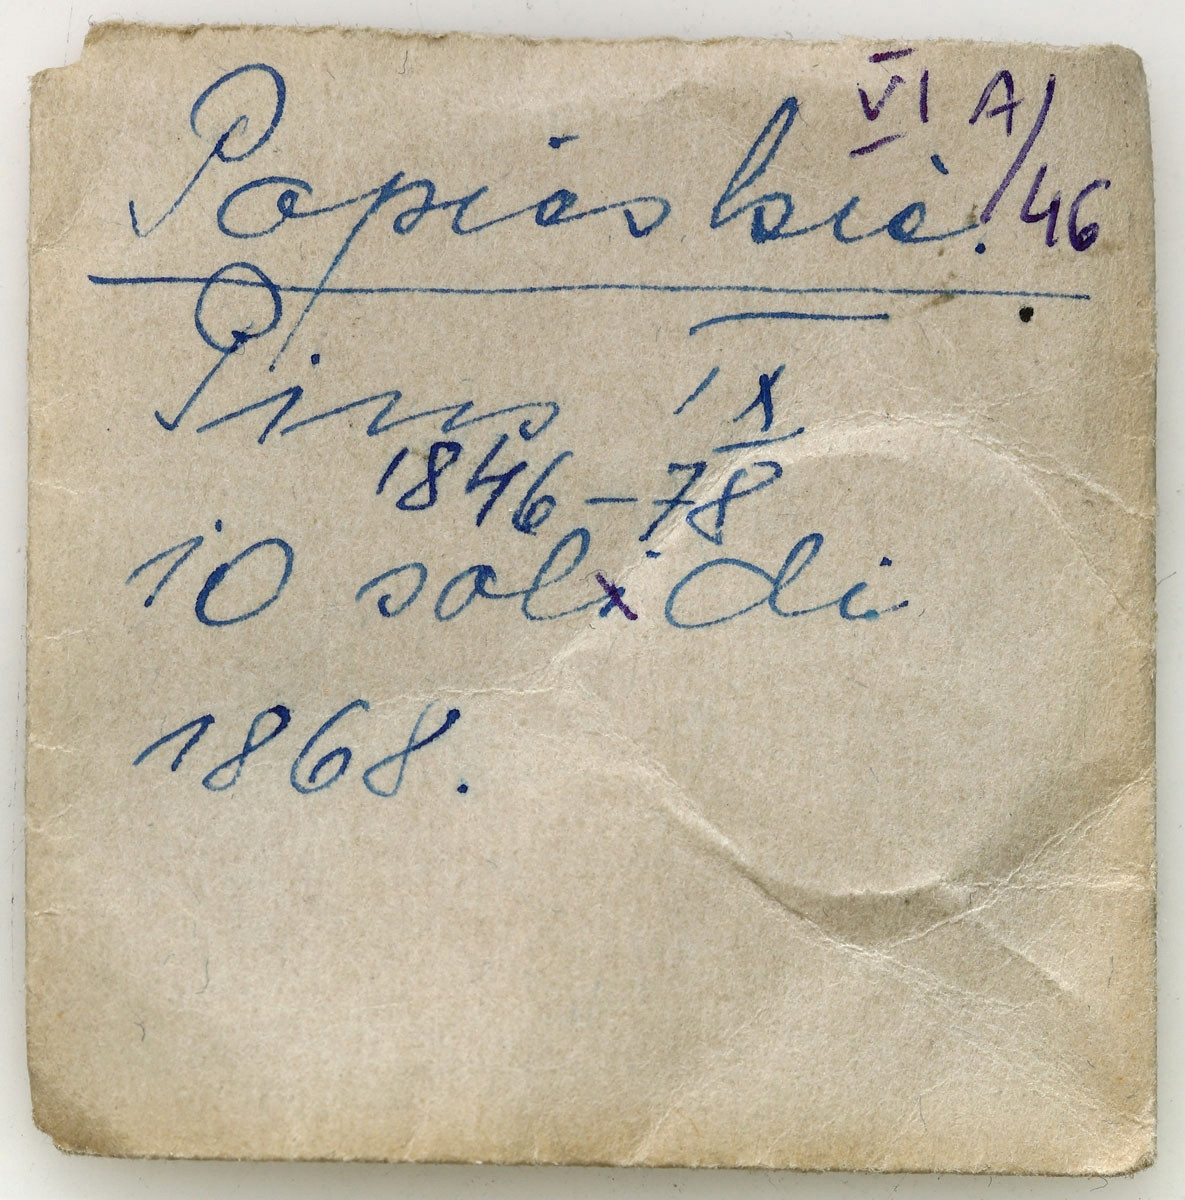 VI A/46
Papieskie.
Pius IX
1846-78
10 solxdi
1868.